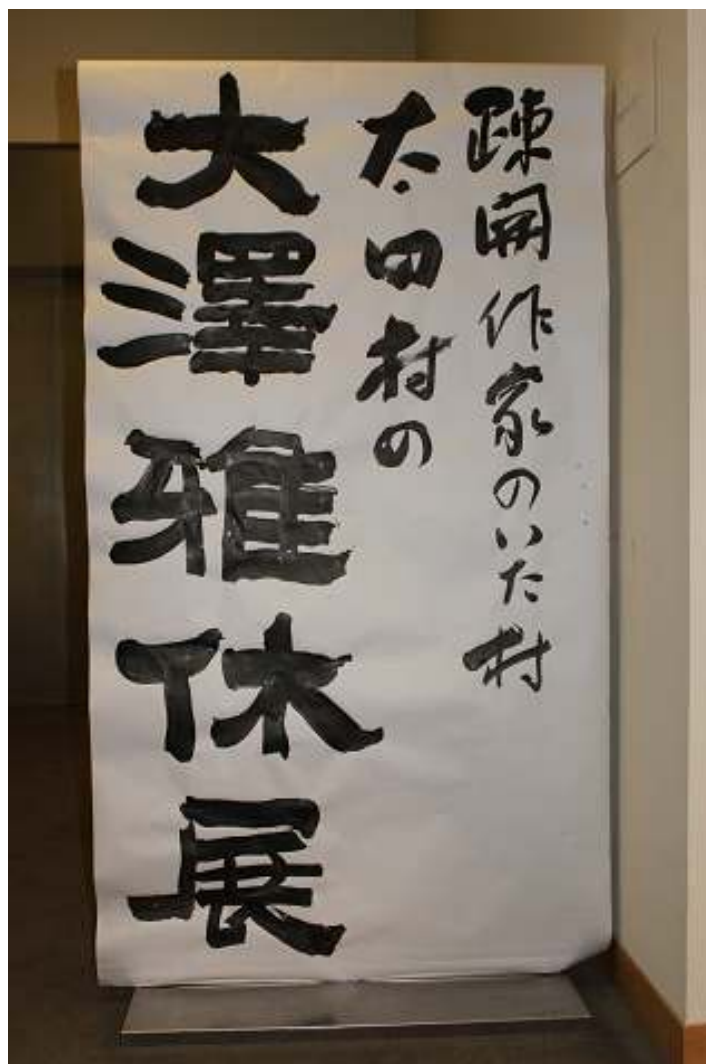 疎開作家のいた村
太田村の
大澤雅休展